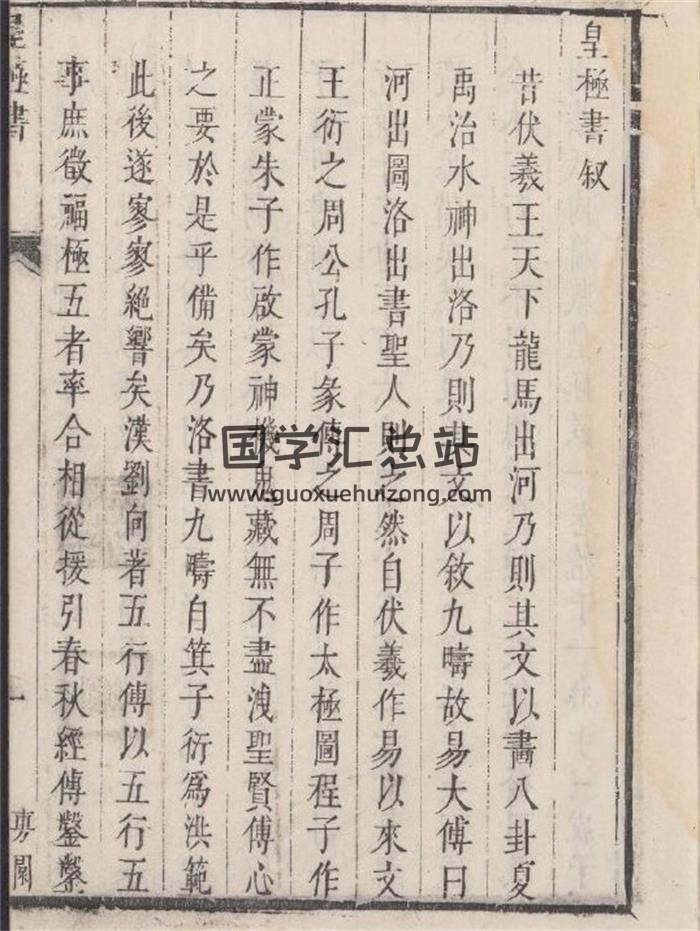 皇極書叙
昔伏羲王天下龍馬出河乃則其文以畫八卦夏
禹治水神出洛乃則其文以敘九疇故易大傳曰
河出圖洛出書聖人則之然自伏羲作易以來文
王衍之周公孔子彖傳之周子作太極圖程子作
正蒙朱子作啟蒙神機鬼藏無不盡洩聖賢傳心
之要於是乎備矣乃洛書九疇自箕子衍爲洪範
此後遂寥寥絕響矣漢劉向著五行傳以五行五
事庶徵福極五者率合相從援引春秋經傳鑿鑿
皇極書
一
國学汇总站
www.guoxuehuizong.com